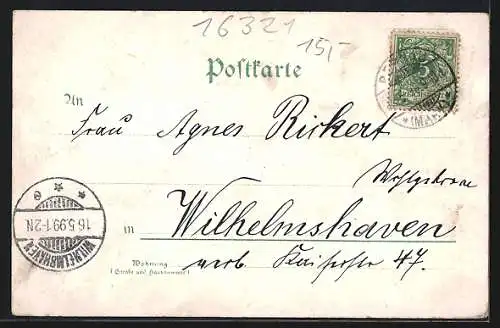 16321
15,-
Postkarte
An
Frau Agnes Rickert
Wohlgeboren
in Wilhelmshaven
Wohnung
(Straße und Hausnummer)
verl. Kaiserstr 47.
WILHELMSHAVEN
16.5.99.1-2N
* * e
5
(MAIN)